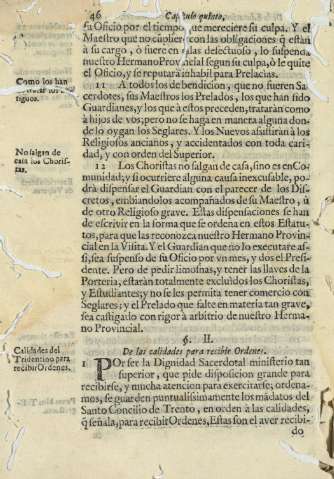 46 Capitulo quinto,
su Oficio por el tiempo, que mereciere su culpa. Y el
Maestro que no cũpliere con las obligaciones q̃ estàn
à su cargo, ò fuere en ellas defectuoso, lo suspenda
nuestro Hermano Provincial segun su culpa, ò le quite
el Oficio, y se reputarà inhabil para Prelacias.
Como los han
de tratar los an
tiguos.
11 A todos los de bendicion, que no fueren Sa-
cerdotes, sus Maestros los Prelados, los que han sido
Guardianes, y los que à estos preceden, trataràn como
à hijos de vos; pero no se haga en manera alguna don-
de lo oygan los Seglares. Y los Nuevos assistiràn à los
Religiosos ancianos, y accidentados con toda cari-
dad, y con orden del Superior.
No salgan de
casa los Choris-
tas.
12 Los Choristas no salgan de casa, sino es en Co-
munidad; y si ocurriere alguna causa inexcusable, po-
drà dispensar el Guardian con el parecer de los Dis-
cretos, embiandolos acompañados de su Maestro, ù
de otro Religioso grave. Estas dispensaciones se han
de escrivir en la forma que se ordena en estos Estatu-
tos, para que las reconozca nuestro Hermano Provin-
cial en la Visita. Y el Guardian que no lo executare as-
si, sea suspenso de su Oficio por vn mes, y dos el Presi-
dente. Pero de pedir limosnas, y tener las llaves de la
Porteria, estaràn totalmente excluidos los Choristas,
y Estudiantes; y no se les permita tener comercio con
Seglares; y el Prelado que falte en materia tan grave,
sea castigado con rigor à arbitrio de nuestro Herma-
no Provincial.
§. II.
De las calidades para recibir Ordenes.
Calidades del
Tridentino para
recibir Ordenes.
1 POr ser la Dignidad Sacerdotal ministerio tan
superior, que pide disposicion grande para
recibirse, y mucha atencion para exercitarse; ordena-
mos, se guarden puntualissimamente los mãdatos del
Santo Concilio de Trento, en orden à las calidades,
q̃ señala, para recibir Ordenes, Estas son el aver recibi-
do